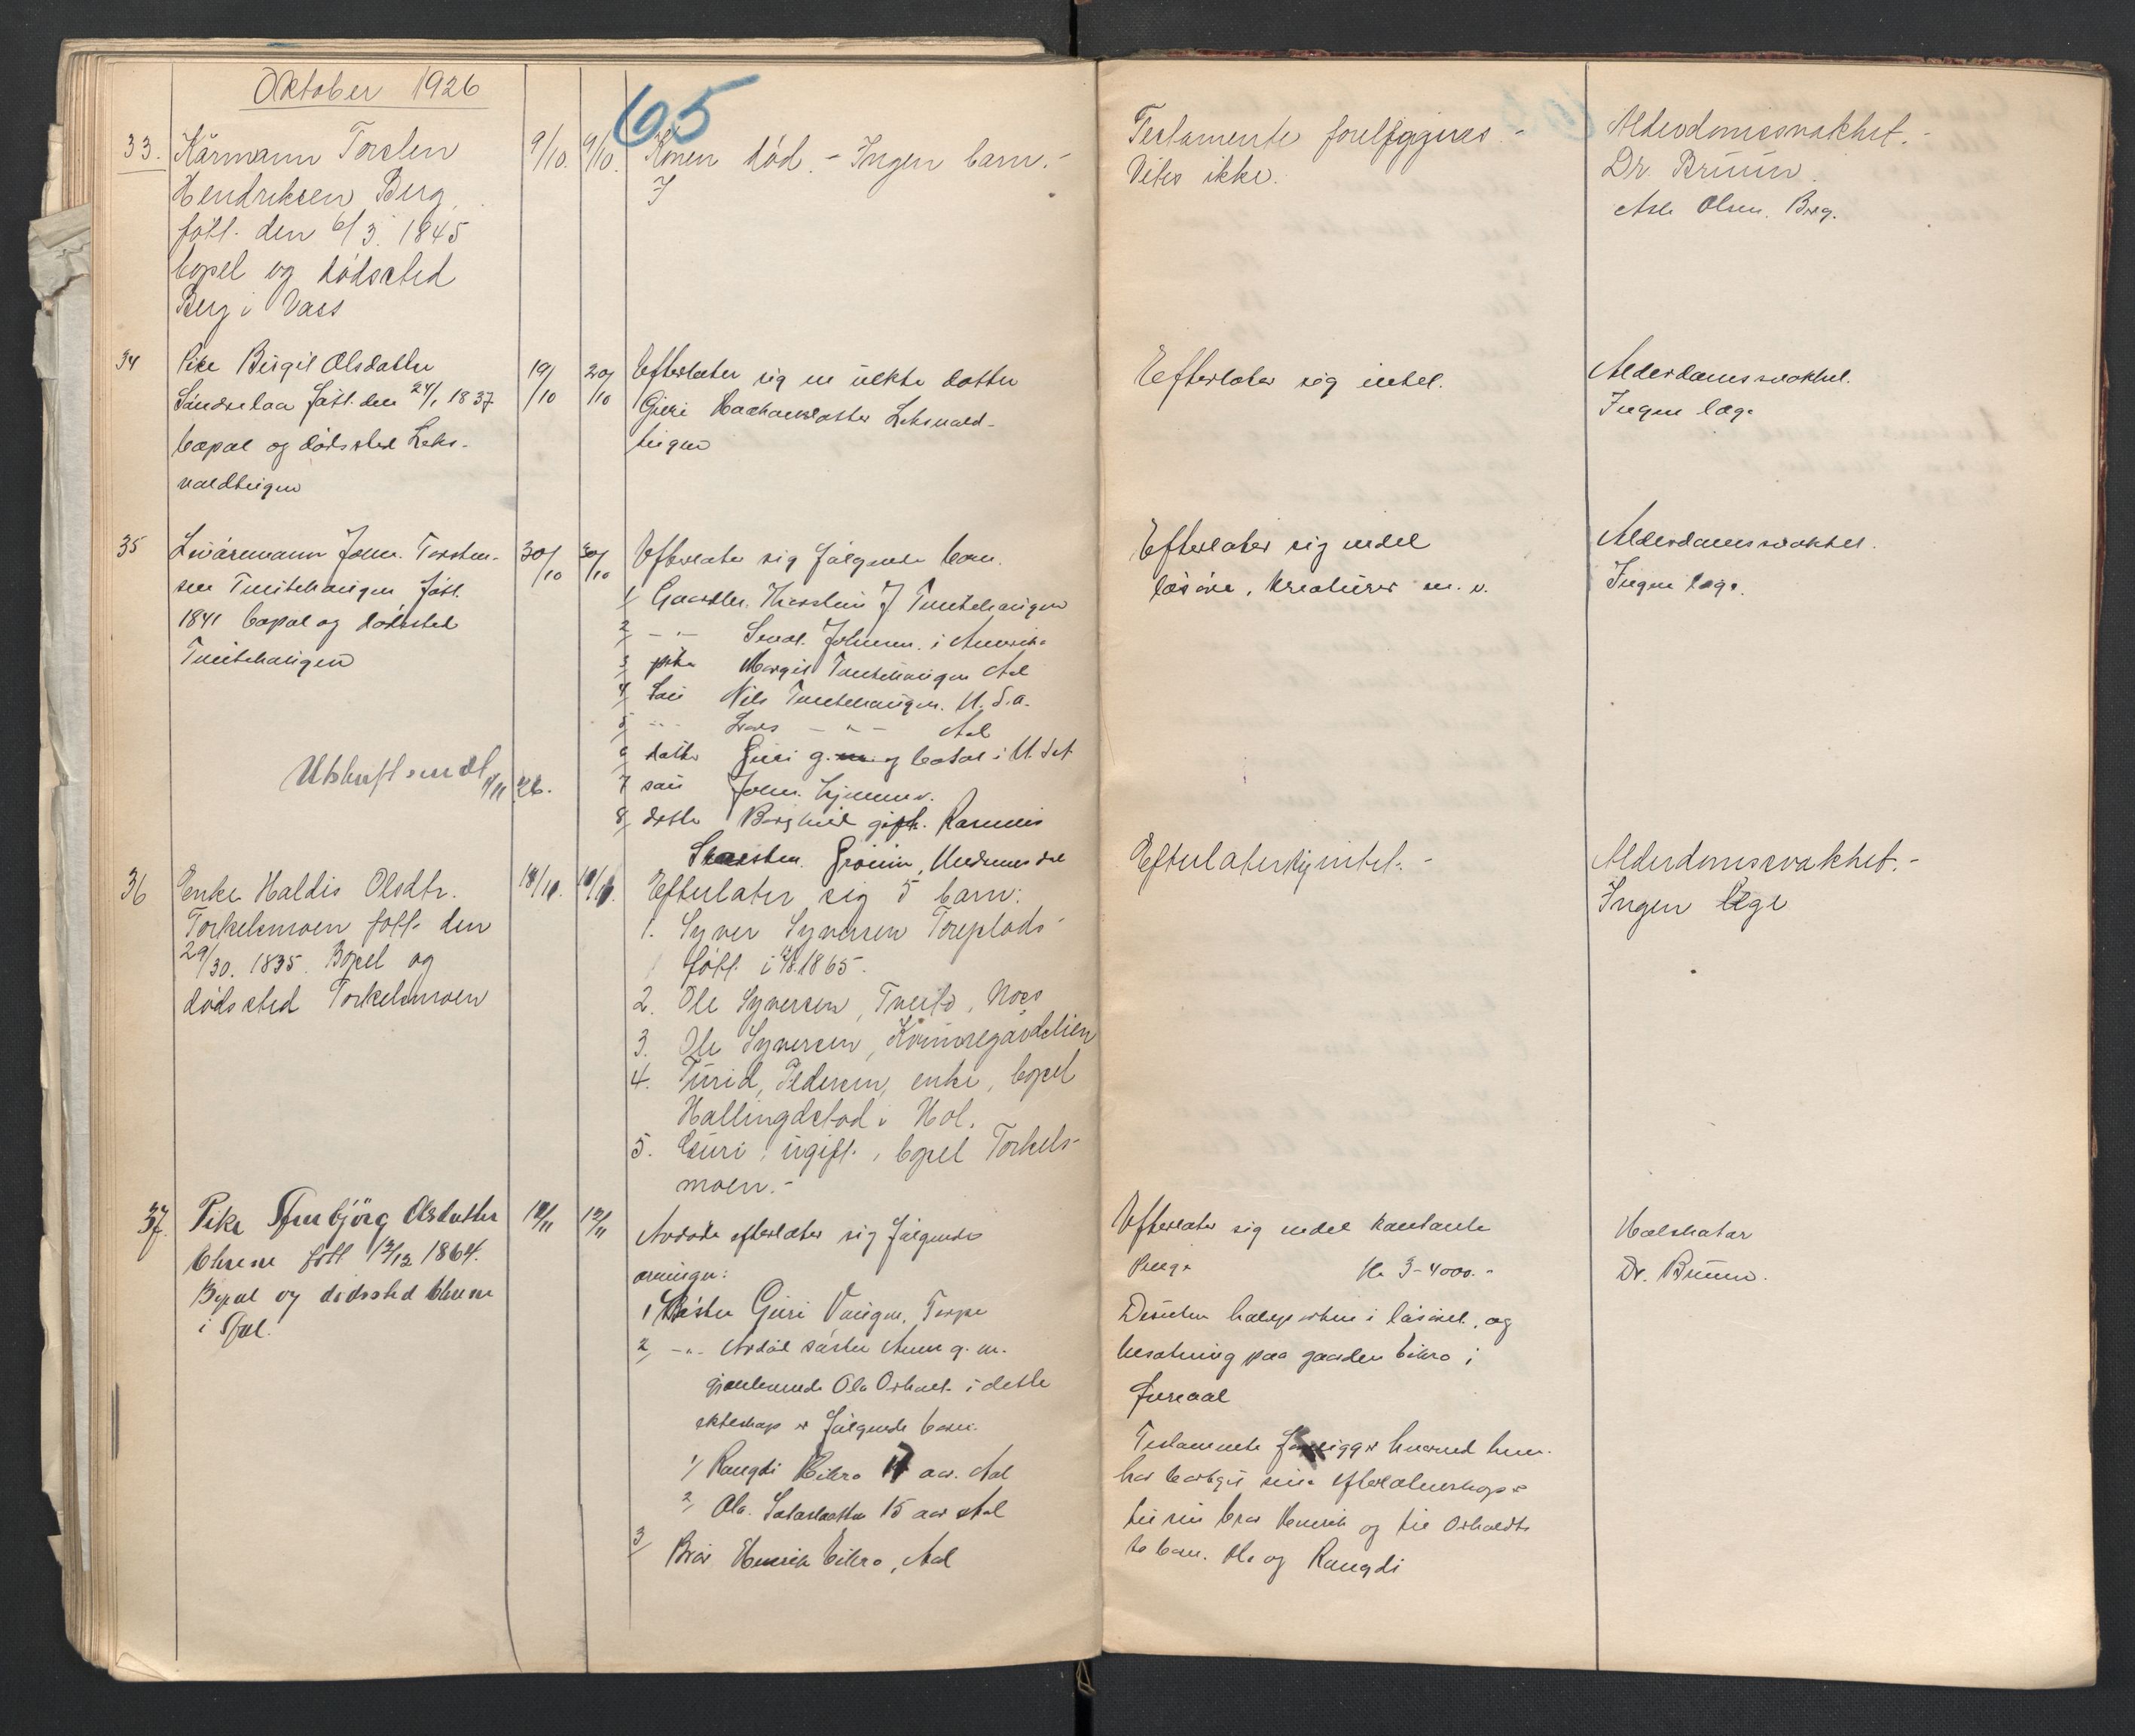 Oktober 1926
65
33. Kårmann Torsten
Hendriksen Berg
født den 6/3 1845
bopel og dødssted
Berg i Vass
9/10. 9/10.
Konen død. - Ingen barn. -
Testamente forelfgges -
Vites ikke.
Alderdomssvakhet. -
Dr. Bruun.
Asle Olsen. Berg.
34 Pike Birgit Olsdatter
Søndrelaa født den 24/1 1837
bopæl og dødssted Leks-
valdteigen
19/10 20/10
Efterlater sig en uekte datter
Guri Haakonsdatter Leksvald-
teigen
Efterlater sig intet.
Alderdomssvakhet.
Ingen læge
35 Livårsmann John. Torsten-
sen Tuftehaugen født
1841 bopæl og dødssted
Tuftehaugen
30/10 30/10
Efterlater sig følgende barn.
1/ Gaardbr. Thorstein J Tuftehaugen
2/ - " - Johnsen. i Amerika
3 pike Margit Tuftehaugen Aal
4/ Søn Nils Tuftehaugen. U. S. a.
5/ - " - Lars - " - Aal
6 datter Guri g. og bosat i U. S A
7 søn John. hjemmev.
8/ datter Borghild gift.
Utskrift sendt 1/11 26.
Efterlater sig endel
løsøre, kreaturer m. v.
Alderdomssvakhet.
Ingen læge.
36 Enke Haldis Olsdtr.
Torkelsmoen født den
29/30. 1835. Bopel og
dødssted Torkelsmoen
18/10. 18/10.
Efterlater sig 5 barn:
1. Syver Syversen Toreplads -
født i 1865.
2. Ole Syversen, Tveito, Næs
3. Ole Syversen, Kvinnegårdslien
4. Turid, Pedersen, enke, bopel
Hallingdstad i Hol.
5. Guri, ugift, bopel Torkels-
moen. -
Efterlater sig intet. -
Alderdomssvakhet. -
Ingen lege
37. Pike Ambjörg Olsdatter
født 12/12 1864.
Bopæl og dødssted
i Aal.
12/11 12/11
Avdøde efterlater sig følgende
arvinger:
1 Søster Guri Vangen, Torpe
2/ - " - Avdød søster Anne g. m.
gjenlevende Ola Oshaet. i dette
ekteskap er følgende barn.
1/ Rangdi Eikro 17 aar. Aal
2/ Ola. 15 aar Aal
3/ Bror Henrik Eikro, Aal
Efterlater sig endel kontante
Penge Kr 3-4000. -
Desuten halvparten i løsøret, og
besætning paa gaarden Eikro i
Torpe
Testamente foreligger hvorved hun
har bortgit sine efterladenskaper
til sin bror Henrik og til Oshaldts
to barn. Ola og Rangdi
Halskatar
Dr. Bruun.